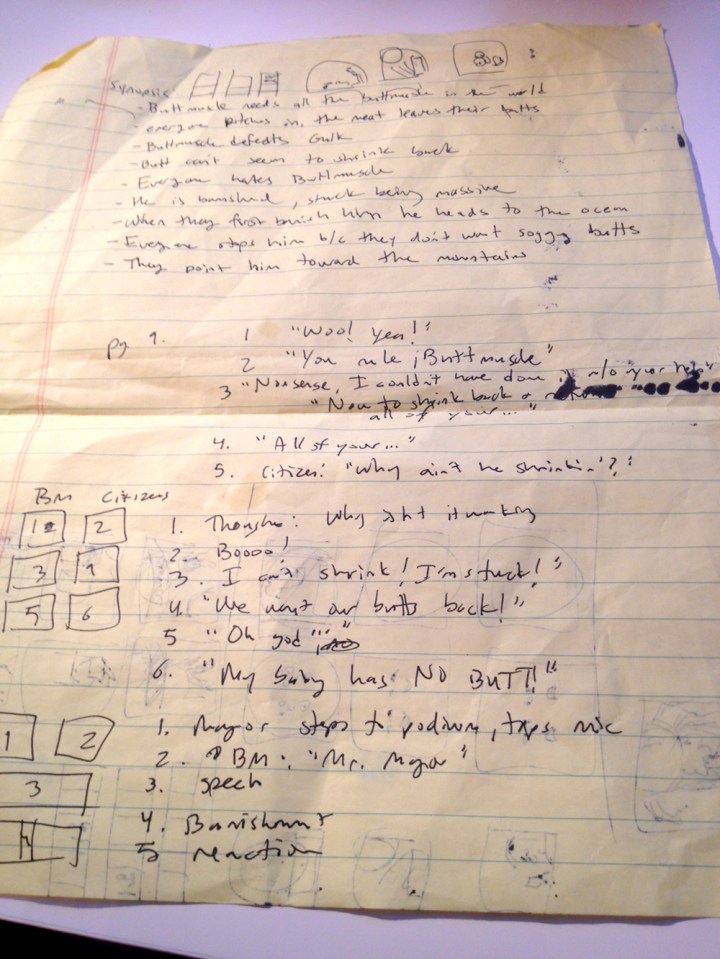 Synopsis:
- Buttmuscle needs all the buttmuscle in the world
- everyone pitches in, the meat leaves their butts
- Buttmuscle defeats Gulk
- Butt can't seem to shrink back
- Everyone hates Buttmuscle
- He is banished, stuck being massive
- When they first banish him he heads to the ocean
- Everyone stops him b/c they don't want soggy butts
- They point him toward the mountains
Pg 1.
1 "Woo! Yea!"
2 "You rule, Buttmuscle"
3 "Nonsense, I couldn't have done it w/o your help"
"Now to shrink back &
all of your..."
4. "All of your..."
5. Citizen: "Why ain't he shrinkin'?"
BM Citizens
1 2
3 4
5 6
1. Thought: Why isn't it working
2. Boooo!
3. I can't shrink! I'm stuck!"
4. "We want our butts back!"
5 "Oh god..."
6. "My baby has NO BUTT!"
1 2
3
4
1. Mayor steps to podium, taps mic
2. BM: "Mr. Mayor"
3. speech
4. Banishment
5 reaction